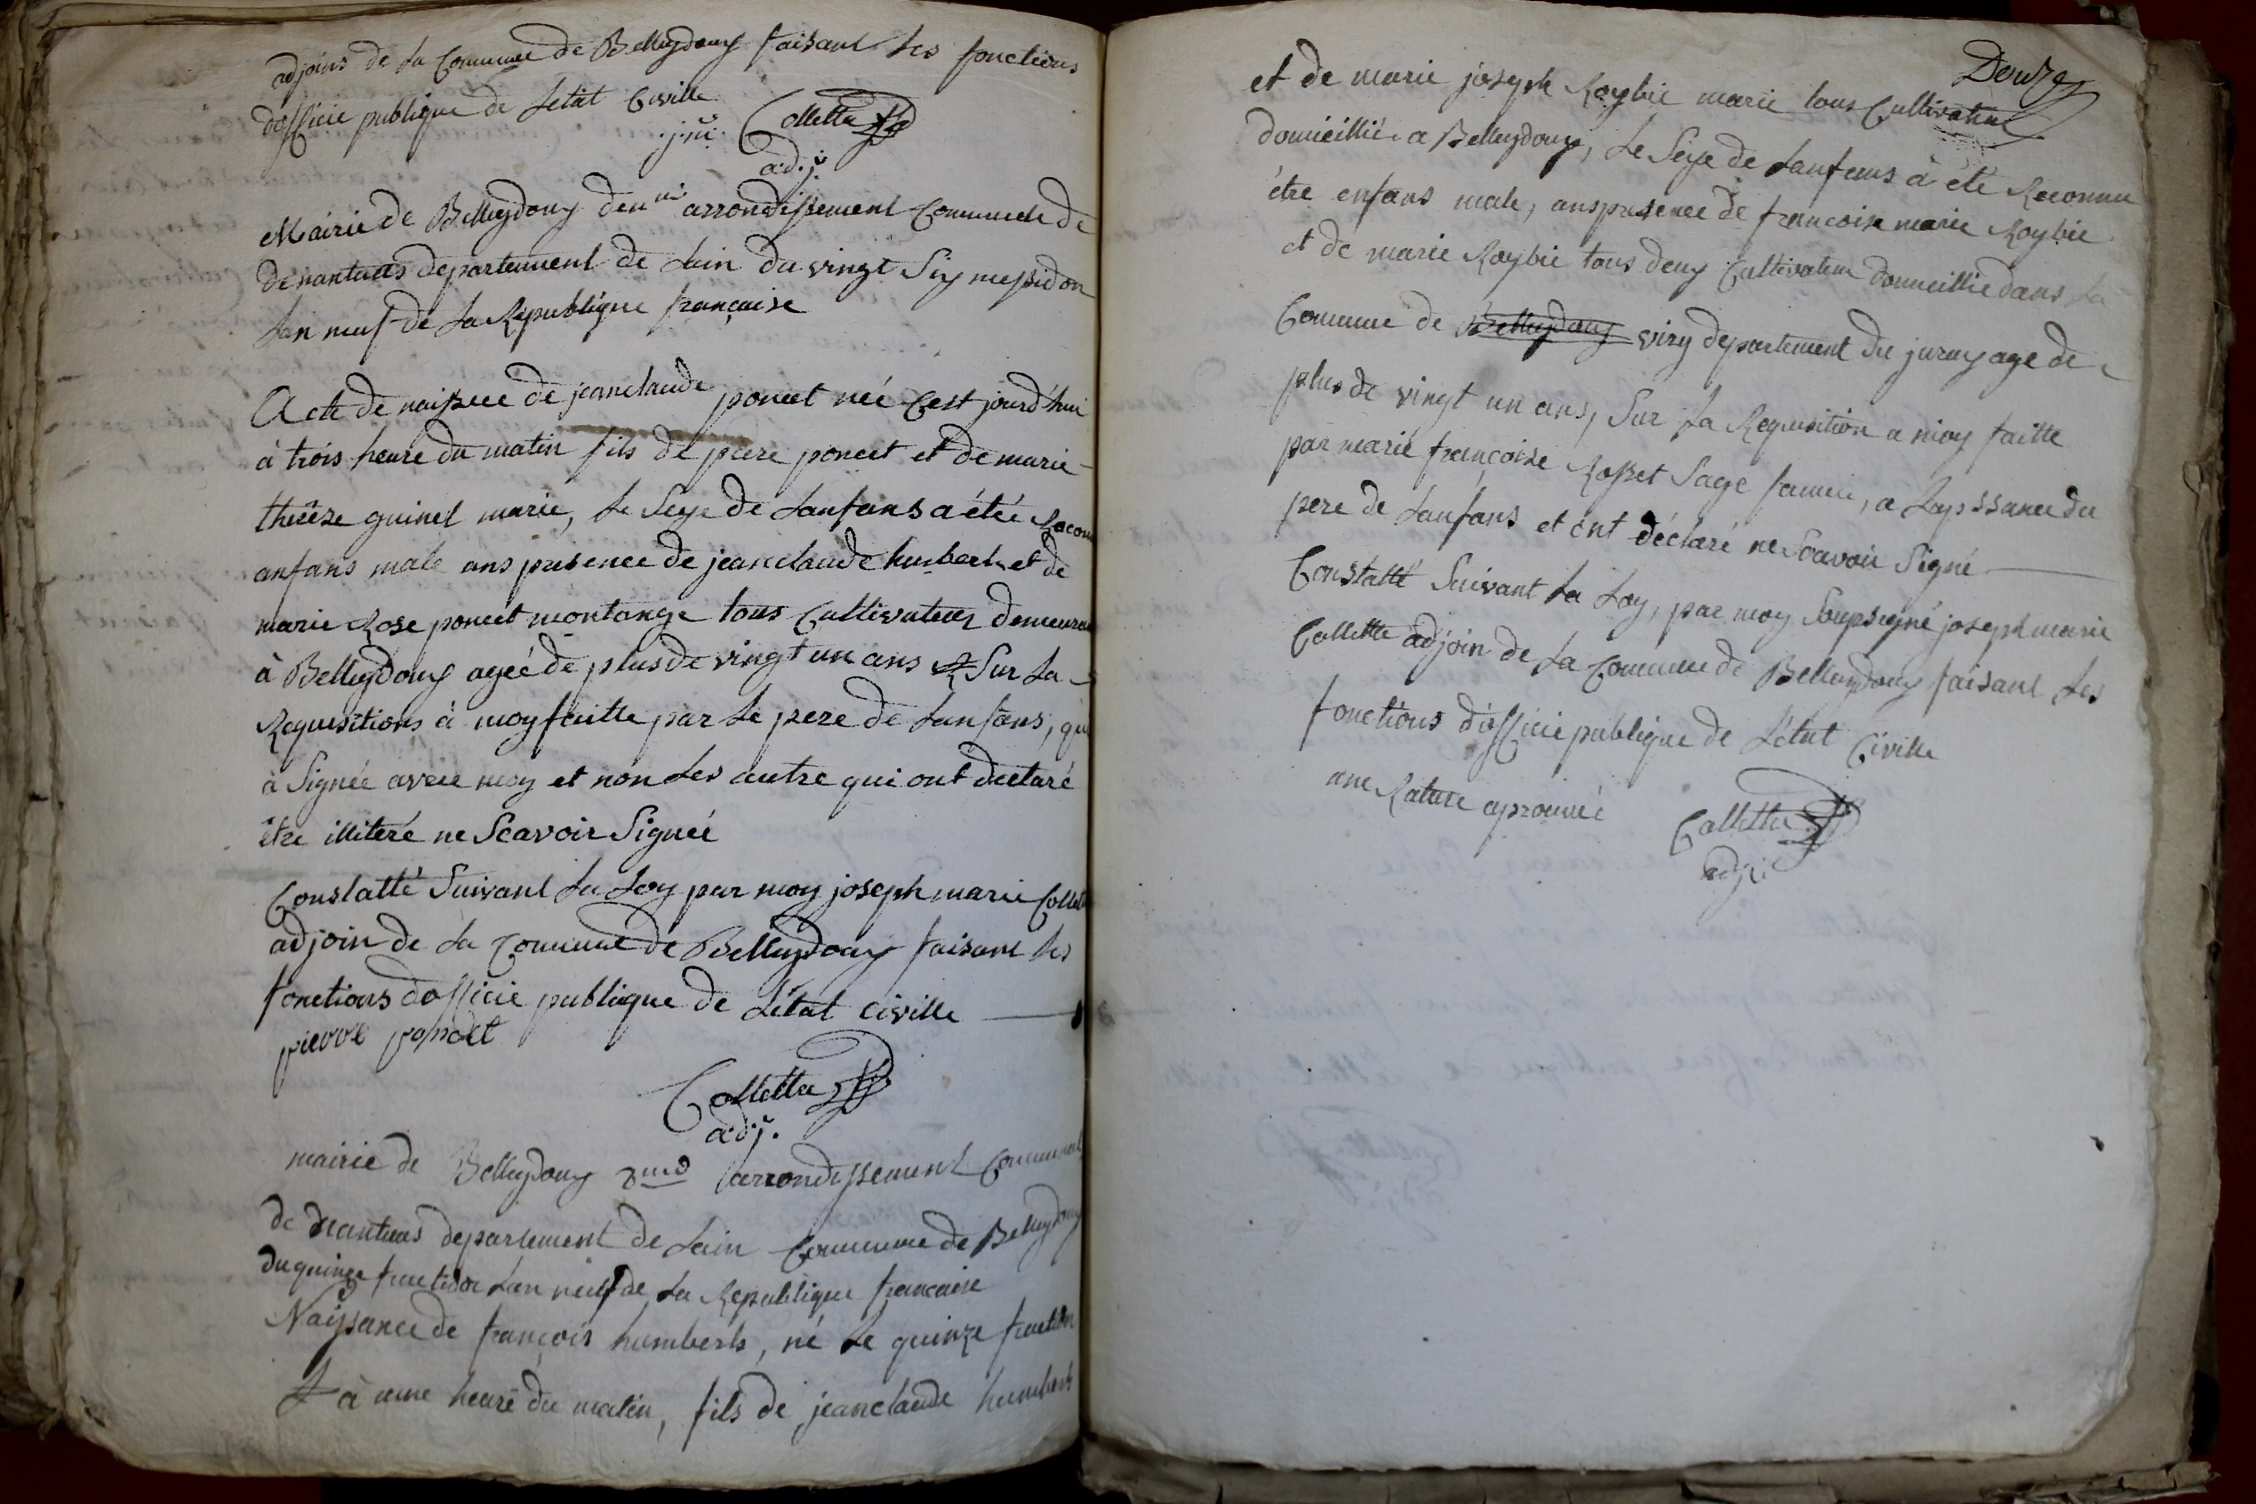 adjoins de la Commune de Belleydoux faisant les fonctions
dofficie publique de Letat Civille
Collettaz
adj.
Mairie de Belleydoux arrondissement Communele de
de nantuas departement de Lain du vingt Six messidor
Lan neuf de La Republique française
Acte de naissce de jean claude poncet née C'est jourd'hui
à trois heure du matin fils de piere poncet et de marie
thérèze guinet marié, Le Sexe de Lanfans a étée Recon
anfans male ans presence de jean claude humberts et de
marie Rose poncet montange tous Cultivateur demeuran
à Belleydoux ageé de plus de vingt un ans Sur La
Requisitions à moy faitte par Le pere de Lanfans, qui
à Signée avece moy et non Les autre qui ont déclaré
être illiteré ne Scavoir Signeé
Constatté Suivant La Loy par moy joseph marie Collett
adjoin de La Commune de Belleydoux faisant les
fonctions dofficie publique de Létat civille
pierre poncet
Collettaz
adj.
mairie de Belleydoux 2me arrondissement Communal
de nantuas departement de Lain Commune de Belleydoux
du quinze fructidor Lan neuf de La Republique francaise
Naissance de françois humberts, né Le quinze fructidor
à une heure du matin, fils de jean claude humberts
Douze
et de marie joseph Roybié marié tous Cultivateur
domicillié a Belleydoux, Le Sexe de Lanfans à été Reconnu
être enfans male, ans presence de francoise marie Roybié
et de marie Roybié tous deux Cultivateur domicillié dans La
Commune de Belleydoux viry departement du jura, age de
plus de vingt un ans, Sur La Requisition a moy faitte
par marié françoise Rosset Sage famme, a du
pere de Lanfans et ont déclaré ne Scavoir Signé
Constatté Suivant La Loy, par moy Soussigné joseph marie
Collettaz adjoin de La Commune de Belleydoux faisant Les
fonctions d'officie publique de L'état Civille
une Rature aprouvée
Collettaz
adj.